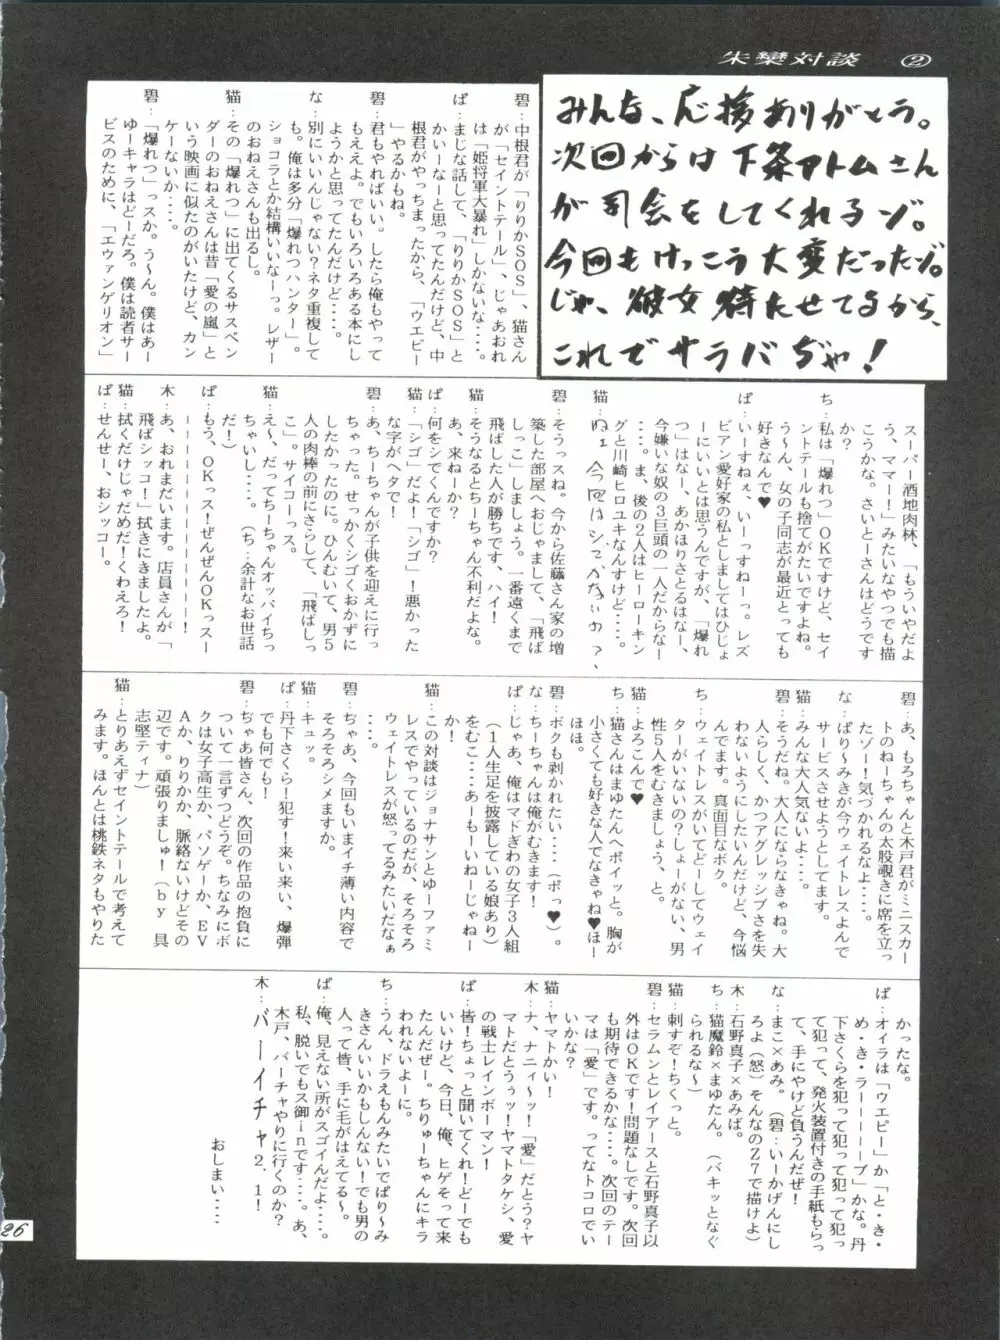 朱欒対談 ②
みんな、応援ありがとう。
次回からは下条アトムさん
が司会をしてくれるゾ。
今回もけっこう大変だったゾ。
じゃ、彼女待たせてるから、
これでサラバぢゃ!
碧:中根君が「りりかSOS」、猫さん
が「セイントテール」、じゃあおれ
は「姫将軍大暴れ」しかないな‥‥。
ぱ:まじな話して、「りりかSOS」と
かいーなーと思ってたんだけど、中
根君がやっちまったから、「ウエピー
」やるかもね。
碧:君もやればいい。したら俺もやって
もええよ。でもいろいろある本にし
ようかと思ってたんだけど‥‥。
な:別にいいんじゃない?ネタ重複して
も。俺は多分「爆れつハンター」。
ショコラとか結構いいなーっ。レザー
のおねえさんも出るし。
猫:その「爆れつ」に出てくるサスペン
ダーのおねえさんは昔「愛の嵐」と
いう映画に似たのがいたけど、カン
ケーないか‥‥。
碧:「爆れつ」っスか。う〜ん。僕はあー
ゆーキャラはどーだろ。僕は読者サー
ビスのために、「エヴァンゲリオン」
スーパー酒地肉林、「もういやだよ
う、ママー!」みたいなやつでも描
こうかな。さいとーさんはどうです
か?
ち:私は「爆れつ」OKですけど、セイ
ントテールも捨てがたいですよね。
う〜ん、女の子同志が最近とっても
好きなんで♥
ぱ:いーすねぇ、いーっすねーっ。レズ
ビアン愛好家の私としましてはひじょ
ーにいいとは思うんですが、「爆れ
つ」はなー、あかほりさとるはなー、
今嫌いな奴の3巨頭の一人だからなー
。ま、後の2人はヒーローキン
グと川崎ヒロユキなんすけど‥‥。
猫:ねェ、今回はシてかないの?、
碧:そうっスね。今から佐藤さん家の増
築した部屋へおじゃまして、「飛ば
しっこ」しましょう。一番遠くまで
飛ばした人が勝ちです、ハイ!
猫:そうなるとちーちゃん不利だよな。
あ、来ねーか?
ぱ:何をシてくんですか?
猫:「シゴ」だよ!「シゴ」!悪かった
な字がヘタで!
碧:あ、ちーちゃんが子供を迎えに行っ
ちゃった。せっかくシゴくおかずに
したかったのに。ひんむいて、男5
人の肉棒の前にさらして、「飛ばしっ
こ」。サイコーっス。
猫:え〜、だってちーちゃんオッパイちっ
ちゃいし‥‥。(ち:余計なお世話
だ!)
ぱ:もう、OKっス!ぜんぜんOKっスー
ーーーーーーーーーーー!
木:あ、おれまだいます。店員さんが「
飛ばシッコ!」拭きにきましたよ。
猫:拭くだけじゃだめだ!くわえろ!
ぱ:せんせー、おシッコー。
碧:あ、もろちゃんと木戸君がミニスカー
トのねーちゃんの太股覗きに席を立っ
たゾー!気づかれるなよ‥‥。
な:ぱり〜みきが今ウェイトレスよんで
サービスさせようとしてます。
猫:みんな大人気ないよ‥‥。
碧:そうだね。大人にならなきゃね。大
人らしく、かつアグレッシブさを失
わないようにしたいんだけど、今悩
んでます。真面目なボク。
ち:ウェイトレスがいてどーしてウェイ
ターがいないの?しょーがない、男
性5人をむきましょう、と。
猫:よろこんで♥
ち:猫さんはまゆたんへポイッと。胸が
小さくても好きな人でなきゃね♥ほー
ほほ。
碧:ボクも剥かれたい‥‥(ポっ♥)。
な:ちーちゃんは俺がむきます!
ぱ:じゃあ、俺はマドぎわの女子3人組
(1人生足を披露している娘あり)
をむこ‥‥あーもーいねーじゃねー
か!
猫:この対談はジョナサンとゆーファミ
レスでやっているのだが、そろそろ
ウェイトレスが怒ってるみたいだなぁ
‥‥。
碧:ぢゃあ、今回もいまイチ薄い内容で
そろそろシメますか。
猫:キュッ。
ぱ:丹下さくら!犯す!来い来い、爆弾
でも何でも!
碧:ぢゃあ皆さん、次回の作品の抱負に
ついて一言ずつどうぞ。ちなみにボ
クは女子高生か、パソゲーか、EV
Aか、りりかか、脈絡ないけどその
辺です。頑張りましゅ!(by 具
志堅ティナ)
猫:とりあえずセイントテールで考えて
みます。ほんとは桃鉄ネタもやりた
かったな。
ぱ:オィラは「ウエピー」か「と・き・
め・き・ラーーーーブ」かな。丹
下さくらを犯って犯って犯って犯っ
て犯って、発火装置付きの手紙もらっ
て、手にやけど負うんだぜ!
な:まこ×あみ。(碧:いーかげんにし
ろよ(怒)そんなのZ7で描けよ)
木:石野真子×あみぱ。
ち:猫魔鈴×まゆたん。(バキッとなぐ
られるな〜)
猫:刺すぞ!ちくっと。
碧:セラムンとレイアースと石野真子以
外はOKです!問題なしです。次回
も期待できるかな‥‥。次回のテー
マは「愛」です。ってなトコロでい
いかな?
猫:ヤマトかい!
木:ナ、ナニィ〜ッ!「愛」だとう?ヤ
マトだとうぅッ!ヤマトタケシ、愛
の戦士レインボーマン!
ぱ:皆!ちょっと聞いてくれ!どーでも
いいけど、今日、俺、ヒゲそって来
たんだぜー。ちりゅーちゃんにキラ
われないよーに。
ち:うん、ドラえもんみたいでぱり〜み
きさんいいかもしんない!でも男の
人って皆、手に毛がはえてる〜。
ぱ:俺、見えない所がスゴイんだよ‥‥。
私、脱いでもス御inです‥‥。あ、
木戸、バーチャやりに行くのか?
木:バーイチャ2.1!
おしまい‥‥
26